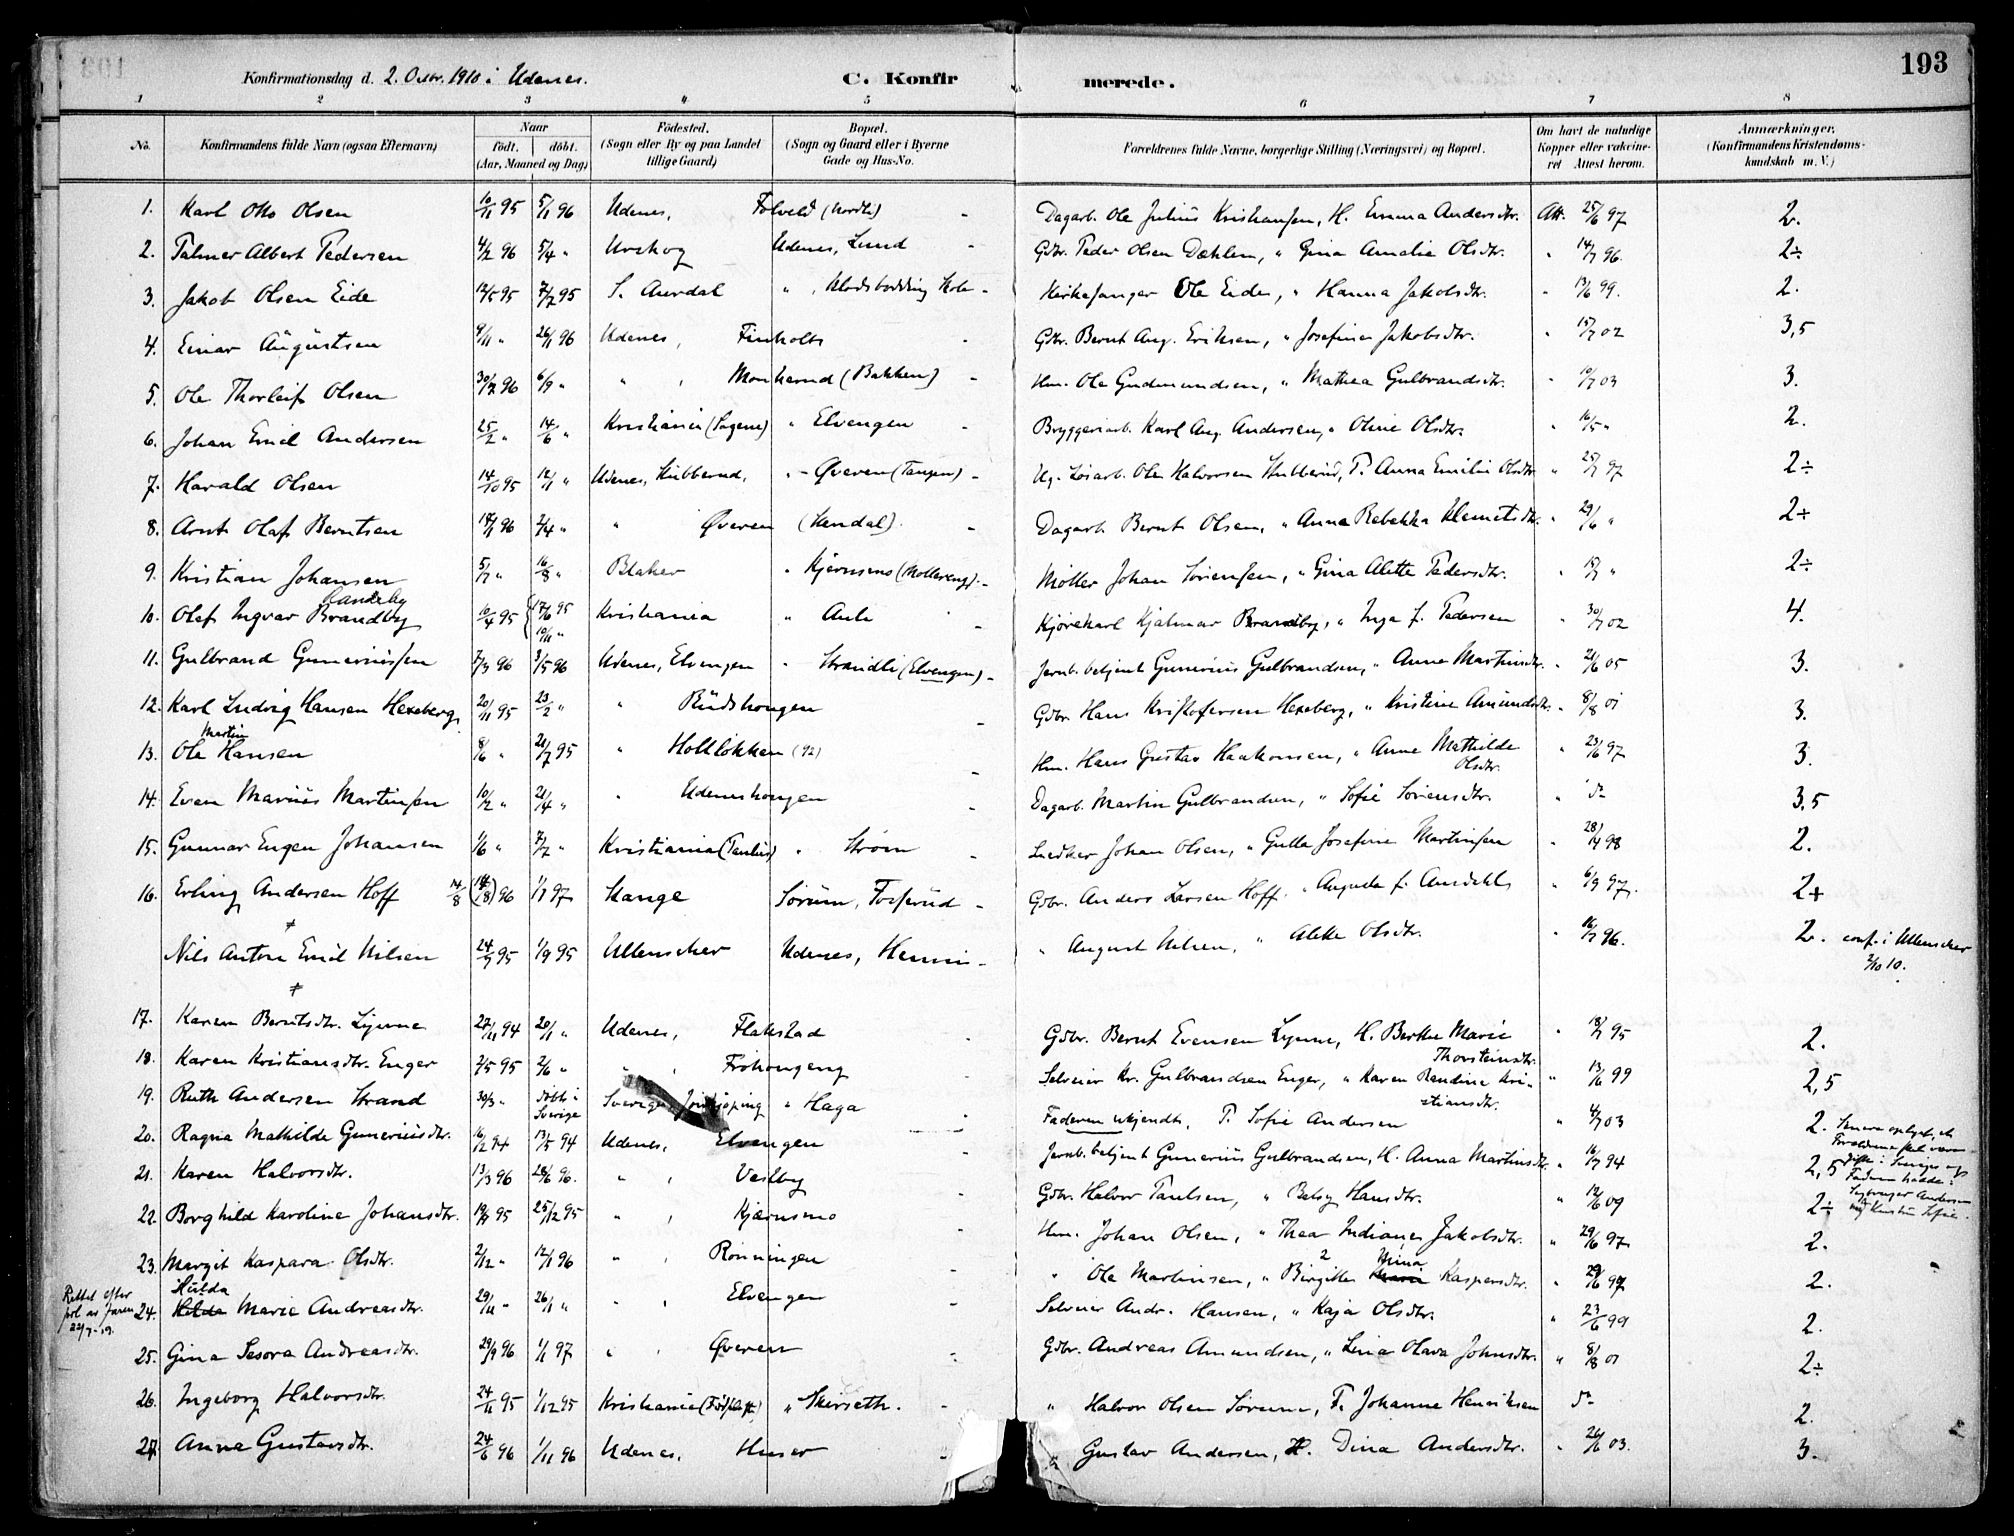 193
Konfirmationsdag d. 2. Octbr. 1910 i Udenes. C. Konfirmerede.
1 2 3 4 5 6 7 8
No. Konfirmandens fulde Navn (ogsaa Efternavn) Naar født. døbt. (Aar, Maaned og Dag) Fødested. (Sogn eller By og paa Landet tillige Gaard) Bopæl. (Sogn og Gaard eller i Byerne Gade og Hus-No. Forældrenes fulde Navne, borgerlige Stilling (Næringsvei) og Bopæl. Om havt de naturlige Kopper eller vakcineret Attest herom. Anmærkninger. (Konfirmandens Kristendomskundskab m. V.)
1. Karl Otto Olsen 10/11 95 5/1 96 Udenes, Folveld (Nordli) Dagarb. Ole Julius Kristiansen, H. Emma Andersdtr. Att. 25/6 97 2.
2. Palmer Albert Pedersen 4/2 96 5/4 " Urskog Udenes, Lund Gdbr. Peder Olsen Dæhlen, " Gina Amalie Olsdtr. " 14/7 96. 2÷
3. Jakob Olsen Eide 12/5 95 7/7 95 S. Aurdal " Kirkesanger Ole Eide, " Hanna Jakobsdtr. " 13/6 99. 2.
4. Einar Augustsen 9/11 " 26/1 96 Udenes, Finholt Gdbr. Bernt Aug. Eriksen, " Josefine Jakobsdtr. " 15/7 02 3,5
5. Ole Thorleif Olsen 30/7 96 6/9 " " , Monkerud (Bakken) Hm. Ole Gudmundsen, " Mathea Gulbrandsdtr. " 10/7 03 3.
6. Johan Emil Andersen 25/2 " 14/6 " Kristiania (Sagene) " Elvengen Bryggeriarb. Karl Aug. Andersen, " Oline Olsdtr. " 16/5 " 2.
7. Harald Olsen 14/10 95 12/1 " Udenes, Hubberud, " Øveren (Tangen) Ug. Løsarb. Ole Halvorsen Hubberud, P. Anna Emilie Olsdtr. " 25/7 97 2÷
8. Arnt Olaf Berntsen 18/1 96 2/4 " " Øveren (Stendal). Dagarb. Bernt Olsen, " Anne Rebekka Klemetsdtr. " 29/6 " 2+
9. Kristian Johansen 5/7 " 16/8 " Blaker " Kjernsmo (Mollereng) Møller Johan Sørensen, " Gina Alette Pedersdtr. " 2÷
Randeby
10. Olaf Ingvar Brandby 10/4 95 { 17/6 95 10/11 " Kristiania " Auli Kjørekarl Hjalmar Brandby, " Inga f. Pedersen " 30/7 02 4.
11. Gulbrand Guneriussen 7/3 96 3/5 96 Udenes, Elvengen " Strandli (Elvengen) Jernb. betjent Gunerius Gulbrandsen, " Anne Martinsdtr. " 21/6 05 3.
12. Karl Ludvig Hansen Hexeberg 20/11 95 23/2 " " Rudshougen Gdbr. Hans Kristofersen Hexeberg, " Kristine Amundsdtr. " 8/8 01 3.
Martin
13. Ole Hansen 8/6 " 21/7 95 " Holtløkken (92) Hm. Hans Gustav Haakonsen, " Anne Mathilde Olsdtr. " 23/6 97 3.
14. Even Marius Martinsen 10/2 " 21/4 " " Udeneshougen Dagarb. Martin Gulbrandsen, " Sofie Sørensdtr. " do 3,5
15. Gunnar Eugen Johansen 1/6 " 7/7 " Kristiania (Paulus) " Strøm Snedker Johan Olsen, " Gulla Josefine Martinsen " 28/4 98 2.
16. Erling Andersen Hoff 14/8 (14/8) 96 1/1 97 Stange Sørum, Fosserud Gdbr. Anders Larsen Hoff. " Augusta f. Amdahl " 6/9 97. 2+
Nils Anton Emil Nilsen 24/7 95 1/9 95 Ullensaker Udenes, Henni " August Nilsen, " Alette Olsdtr. " 16/7 96. 2. conf. i Ullensaker 2/10 10.
17. Karen Berntsdtr. Lynne 27/11 94 20/1 " Udenes, Flakstad Gdbr. Bernt Evensen Lynne, H. Berthe Marie Thorsteinsdtr. " 18/7 95 2.
18. Karen Kristiansdtr. Enger 2/5 95 2/6 " " , Frihougeng Selveier Kr. Gulbrandsen Enger, " Karen Randine Kristiansdtr. " 13/6 99 2,5
19. Ruth Andersen Strand 30/3 " Døbt i Sverige Sverige, Jönkjöping " Haga Faderen ukjendt, P. Sofie Andersen " 4/7 03 2.
20. Ragna Mathilde Guneriusdtr. 16/2 94 13/5 94 Udenes, Elvengen Jernb. betjent Gunerius Gulbrandsen, H. Anna Martinsdtr. " 16/7 94 2,5
21. Karen Halvorsdtr. 13/3 96 28/6 96. " , Vestby Gdbr. Halvor Paulsen, " Betsy Hansdtr. " 12/6 09 2÷
22. Borghild Karoline Johansdtr. 19/9 95 25/12 95 " , Kjærnsmo Hm. Johan Olsen, " Thea Indiane Jakobsdtr. " 29/6 97 2.
23. Margit Kaspara Olsdtr. 2/12 " 12/1 96 " , Rønningen " Ole Martinsen, " Birgitte Mina Kaspersdtr. " 29/6 97 2.
Rettet efter
Hulda
24. Hilda Marie Andreasdtr. 29/11 " 26/1 " " , Elvengen Selveier Andr. Hansen, " Kaja Olsdtr. " 23/6 99 2.
25. Gina Sesora Andreasdtr. 29/9 96 1/1 97 " , Øveren Gdbr. Andreas Amundsen, " Lina Olava Johnsdtr. " 8/8 01 2÷
26. Ingeborg Halvorsdtr. 24/11 95 1/12 95 Kristiania " Skirseth. " Halvor Olsen Sørum, F. Johanne Henriksen do 2.
27. Anna Gustavsdtr. 24/6 96 1/11 96 Udenes, Huser " Gustav Andersen, H. Dina Andersdtr. " 26/6 03. 3.